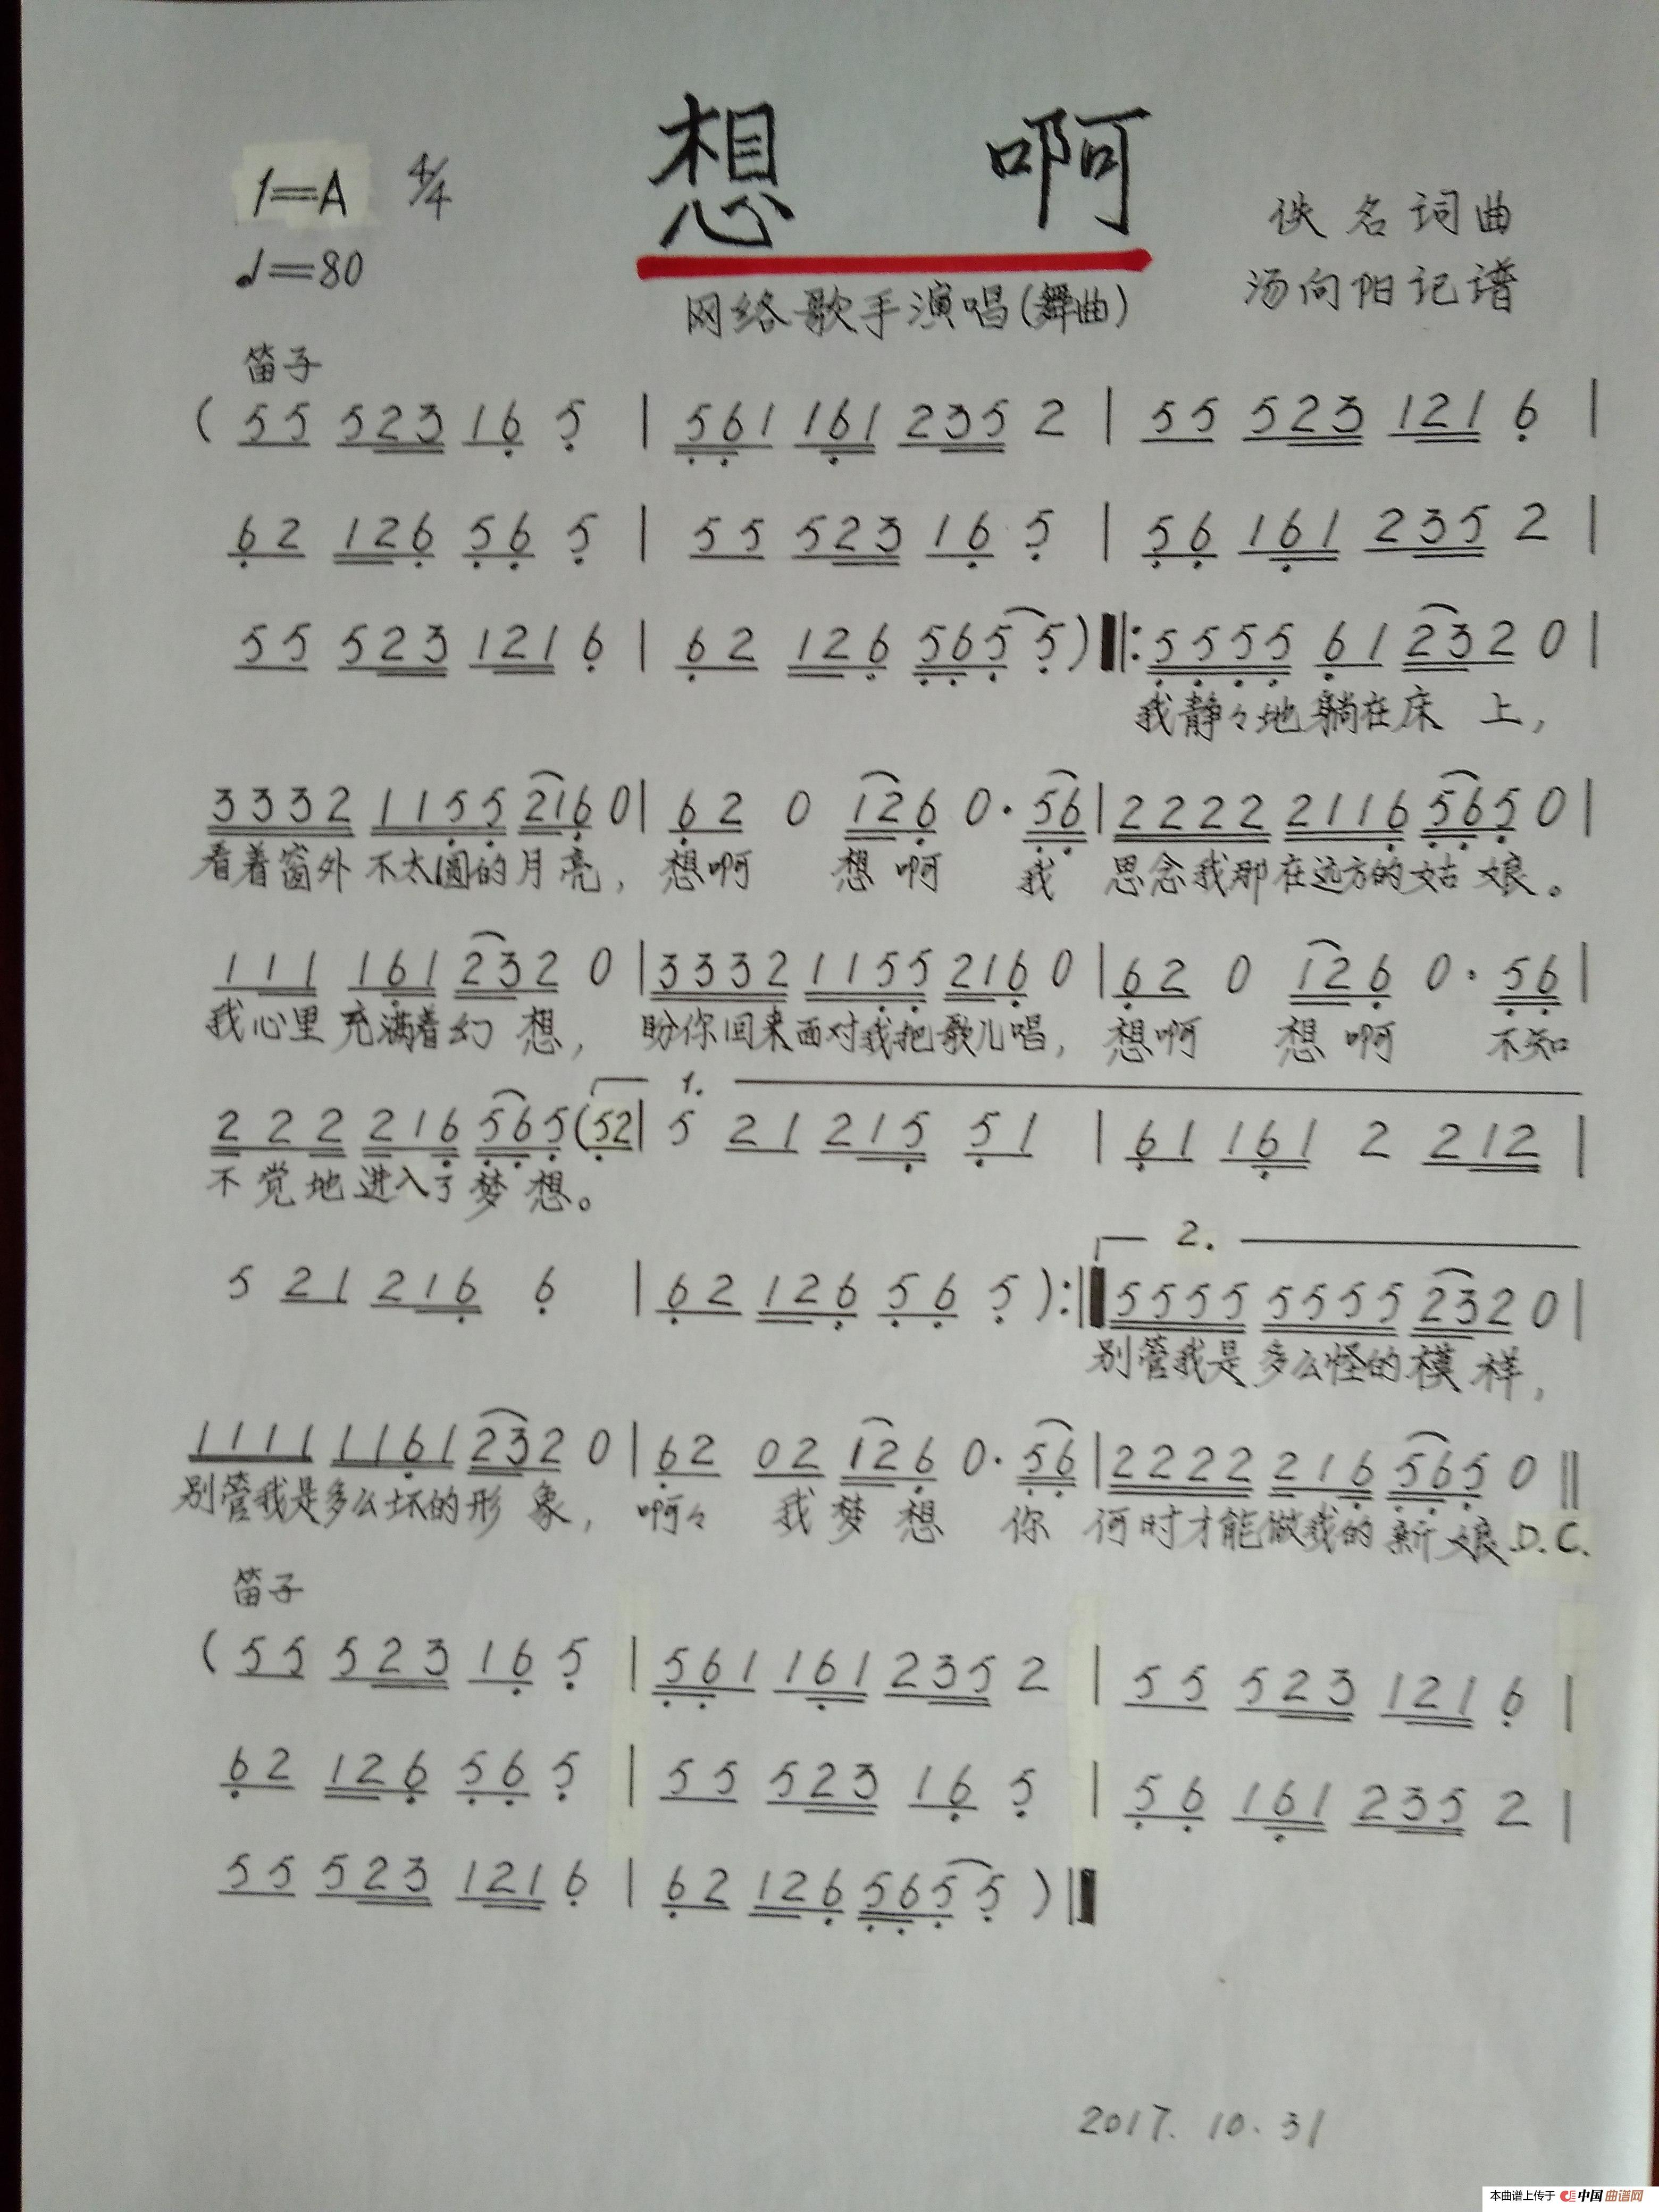 想 啊
1=A 4/4
♩=80
佚名词曲
汤向阳记谱
网络歌手演唱(舞曲)
笛子
( 5 5 5 2 3 1 6 5 | 5 6 1 1 6 1 2 3 5 2 | 5 5 5 2 3 1 2 1 6 |
6 2 1 2 6 5 6 5 | 5 5 5 2 3 1 6 5 | 5 6 1 6 1 2 3 5 2 |
5 5 5 2 3 1 2 1 6 | 6 2 1 2 6 5 6 5 5 ) ‖: 5 5 5 5 6 1 2 3 2 0 |
我静々地躺在床 上,
3 3 3 2 1 1 5 5 2 1 6 0 | 6 2 0 1 2 6 0 · 5 6 | 2 2 2 2 2 1 1 6 5 6 5 0 |
看着窗外 不太圆的月亮, 想啊 想啊 我 思念我那在远方的姑娘。
1 1 1 1 6 1 2 3 2 0 | 3 3 3 2 1 1 5 5 2 1 6 0 | 6 2 0 1 2 6 0 · 5 6 |
我心里充满着幻 想, 盼你回来面对我把歌儿唱, 想啊 想啊 不知
1.
2 2 2 2 1 6 5 6 5 ( 5 2 | 5 2 1 2 1 5 5 1 | 6 1 1 6 1 2 2 1 2 |
不觉地进入了梦想。
2.
5 2 1 2 1 6 6 | 6 2 1 2 6 5 6 5 ) :‖ 5 5 5 5 5 5 5 5 2 3 2 0 |
别管我是多么怪的模样,
1 1 1 1 1 1 6 1 2 3 2 0 | 6 2 0 2 1 2 6 0 · 5 6 | 2 2 2 2 2 1 6 5 6 5 0 ‖
别管我是多么坏的形象, 啊々 我梦想 你 何时才能做我的新娘 D.C.
笛子
( 5 5 5 2 3 1 6 5 | 5 6 1 1 6 1 2 3 5 2 | 5 5 5 2 3 1 2 1 6 |
6 2 1 2 6 5 6 5 | 5 5 5 2 3 1 6 5 | 5 6 1 6 1 2 3 5 2 |
5 5 5 2 3 1 2 1 6 | 6 2 1 2 6 5 6 5 5 ) ‖
2017. 10. 31
本曲谱上传于 中国曲谱网